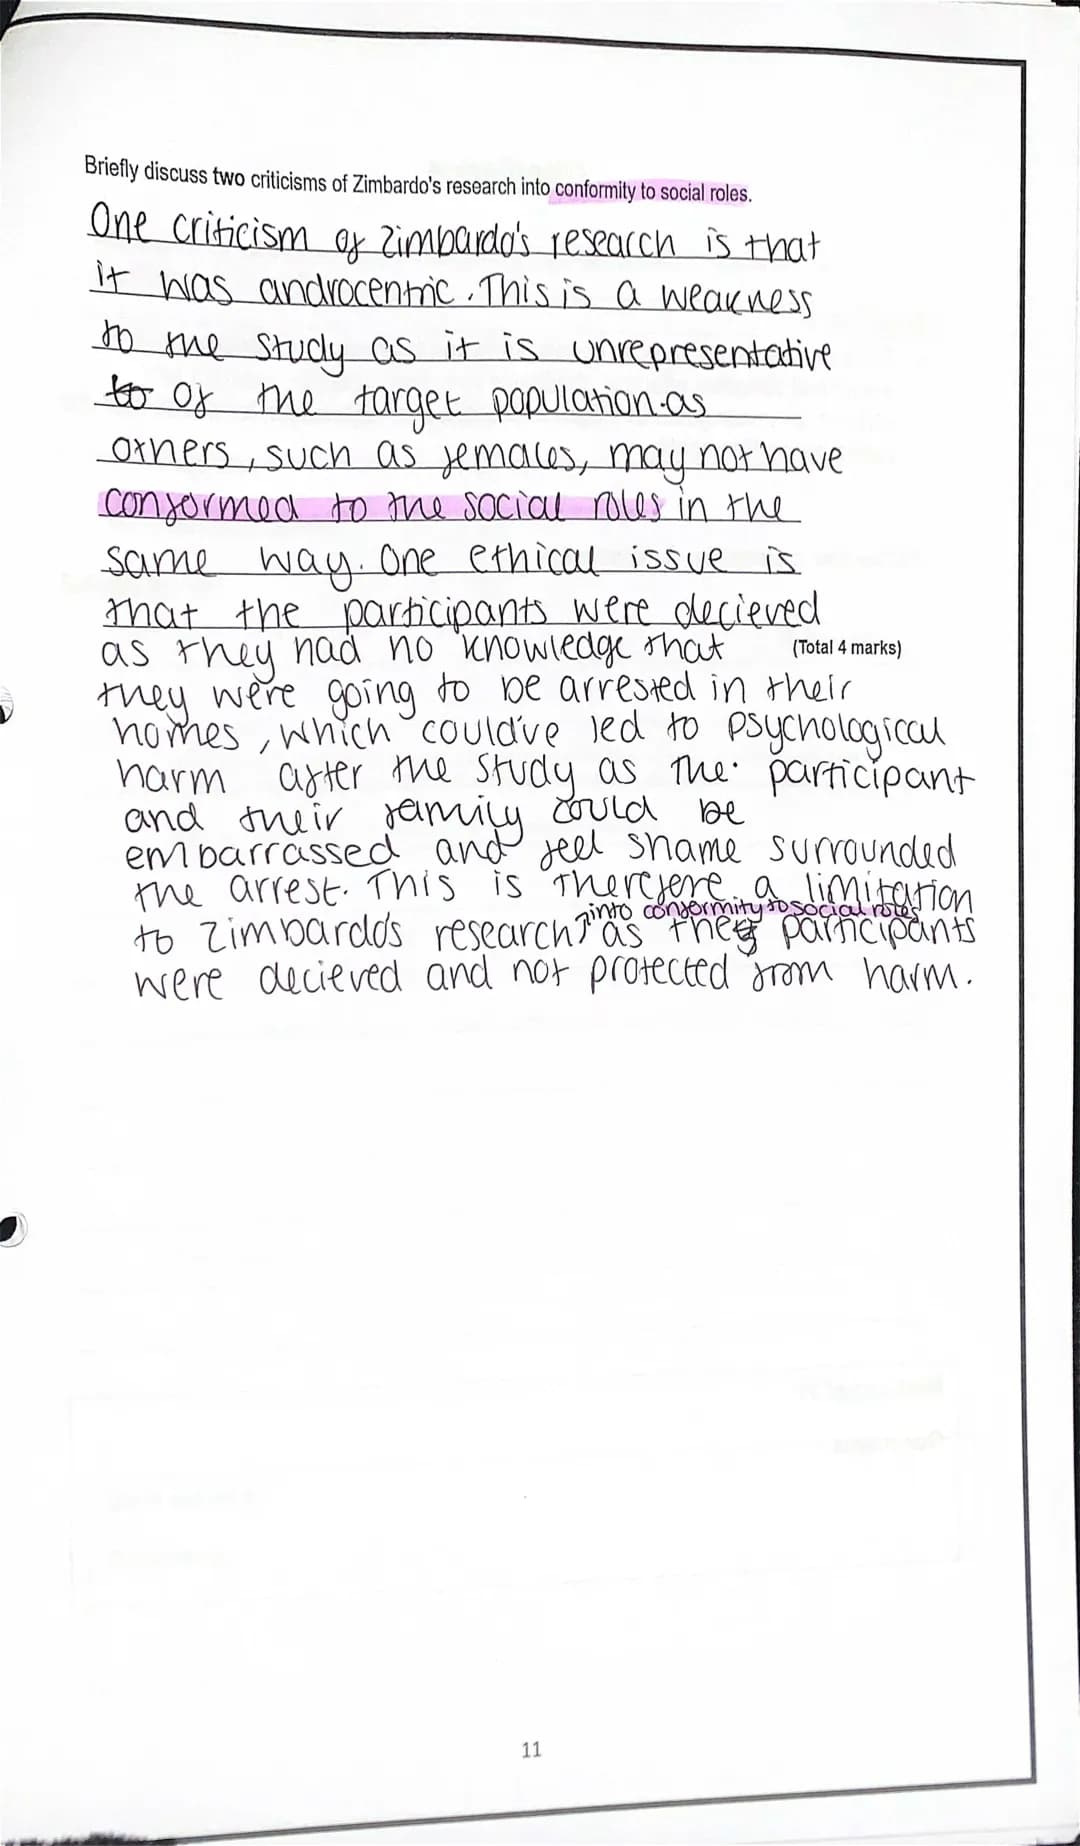 Briefly discuss two criticisms of Zimbardo's research into conformity to social roles.
One criticism of Zimbardo's research is that
it was androcentric. This is a weakness
to the study as it is unrepresentative
to of the target population as
others, such as females, may not have
conformed to the social roles in the
same way. One ethical issue is
that the participants were decieved
as they had no knowledge that
(Total 4 marks)
they were going to be arrested in their
homes, which could've led to psychological
harm after the study as the participant
and their family could be
embarrassed and feel shame surrounded
the arrest. This is therefere a limitation
into conformity to social roles
to Zimbardo's research, as they participants
were decieved and not protected from harm.
11